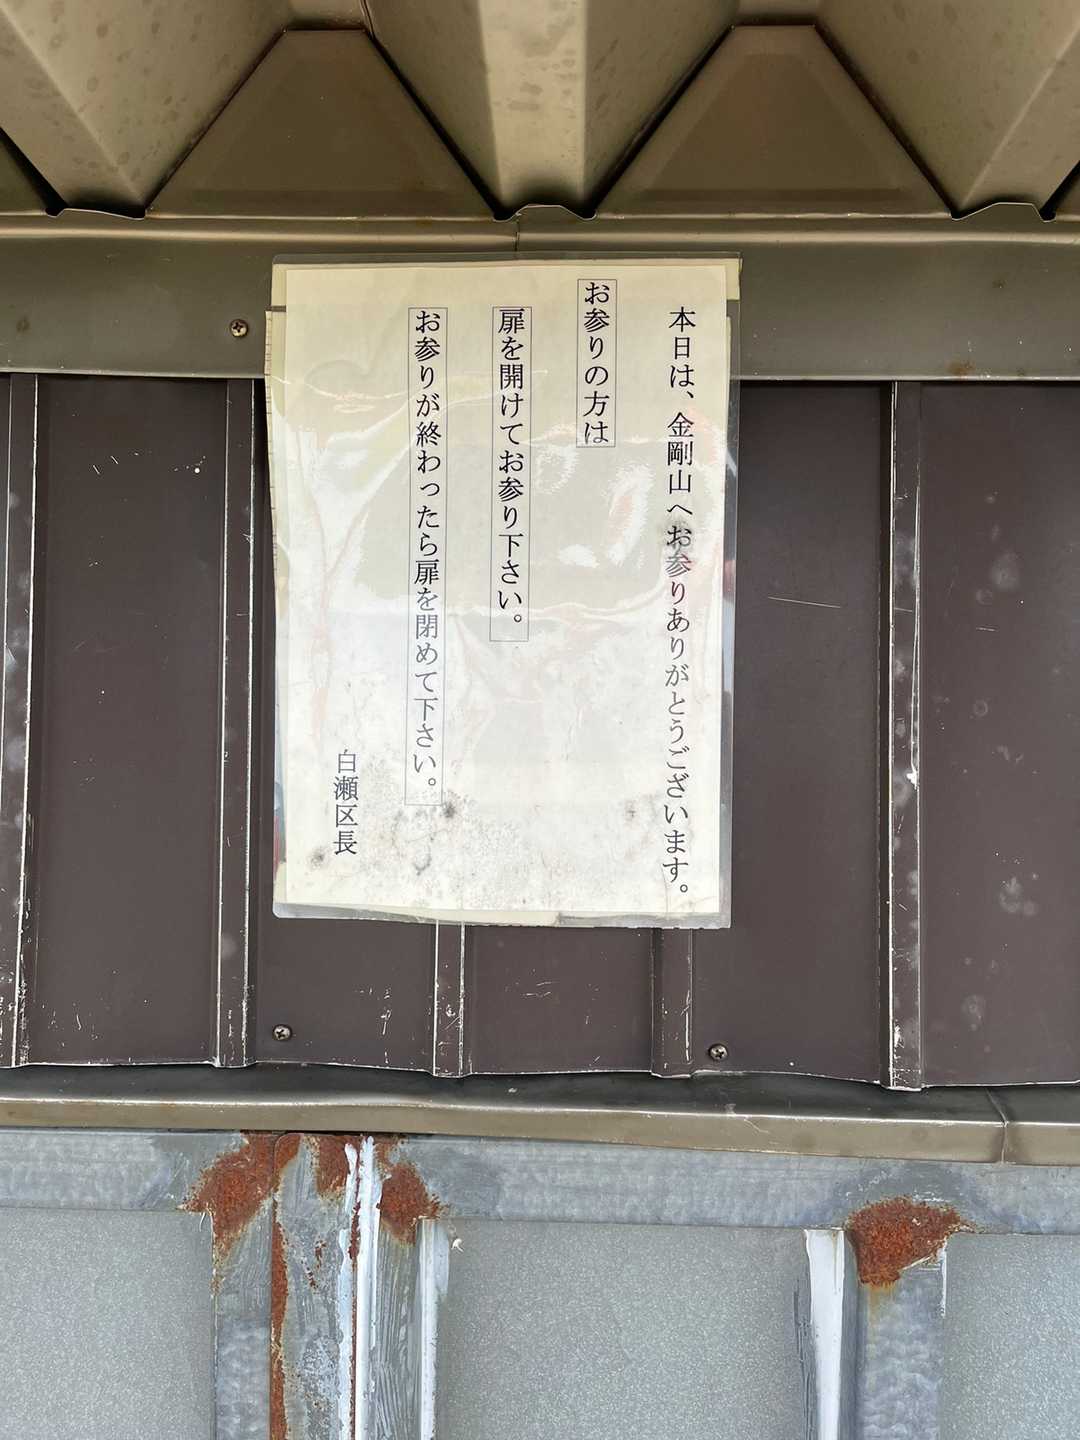 本日は、金剛山へお参りありがとうございます。
お参りの方は
扉を開けてお参り下さい。
お参りが終わったら扉を閉めて下さい。
白瀬区長